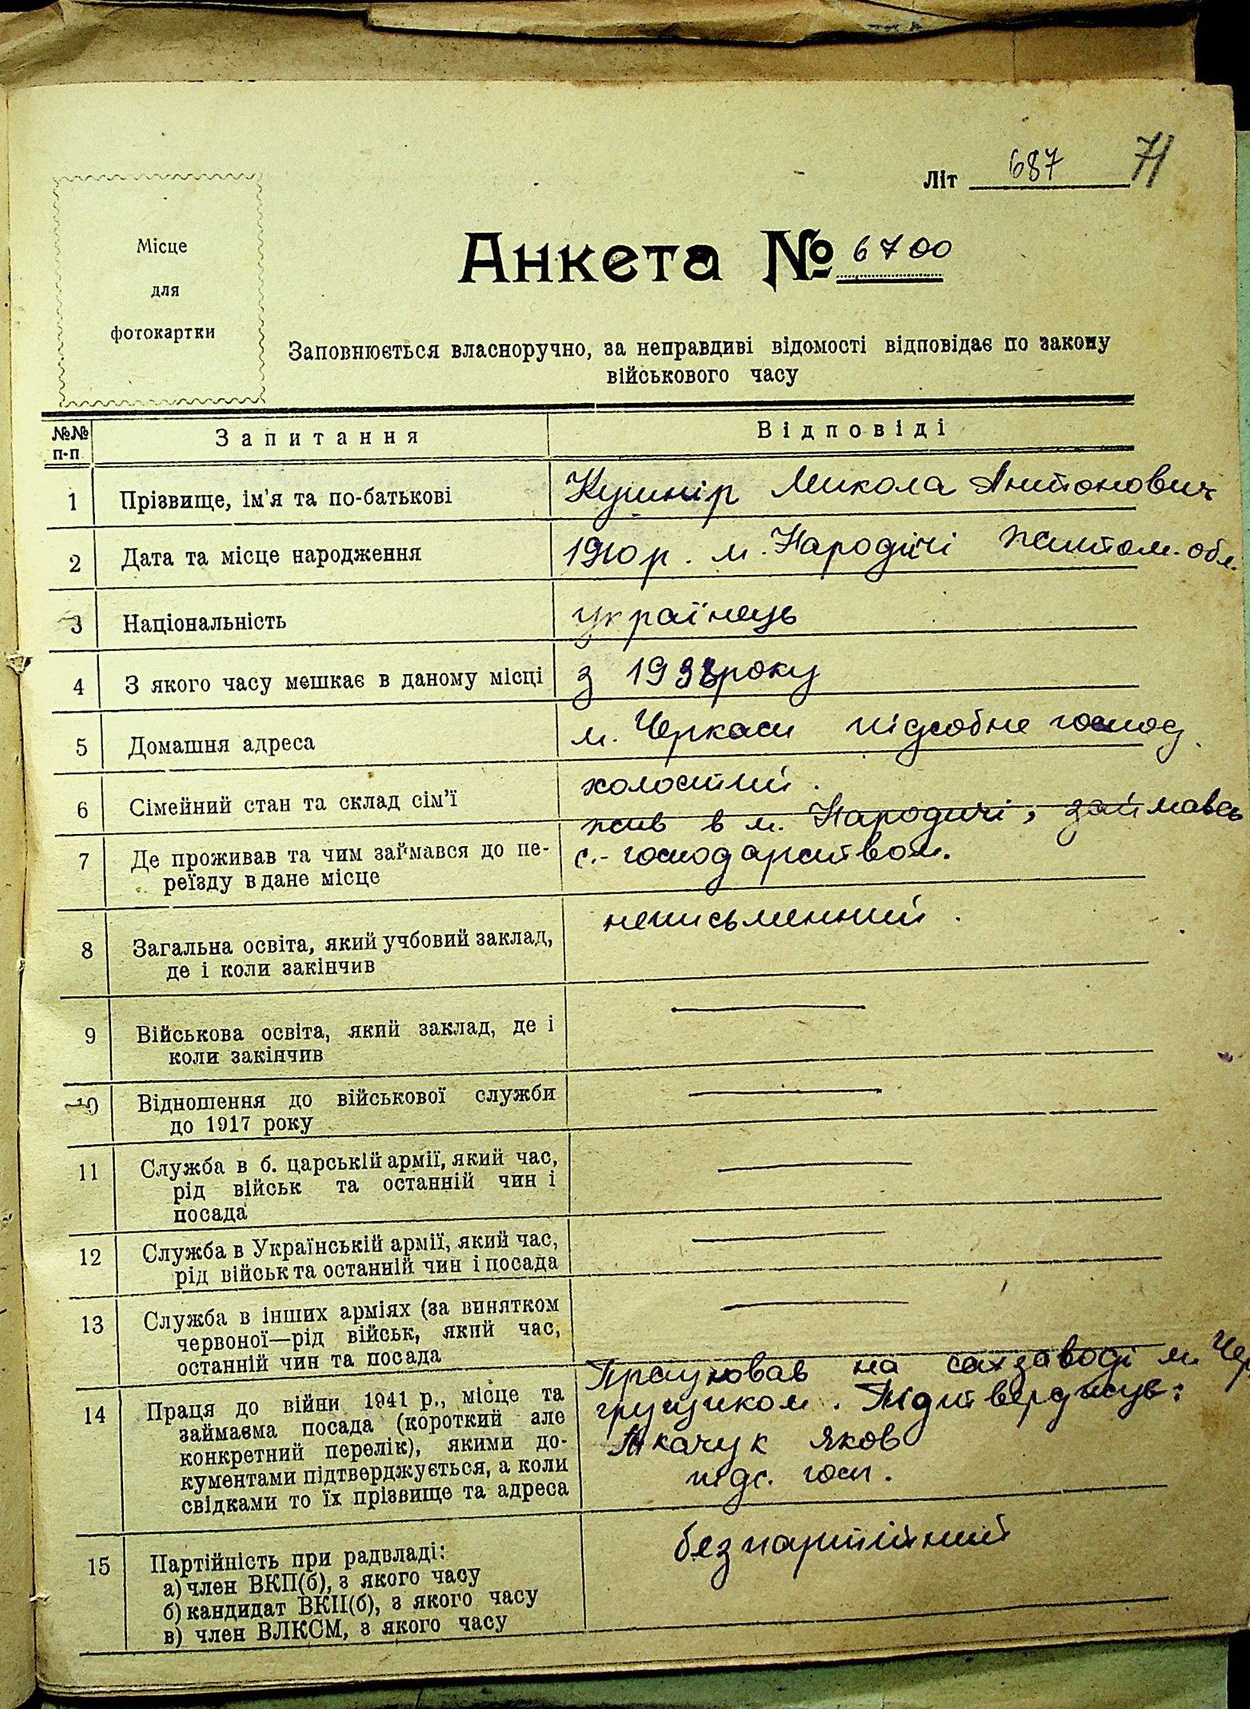 Літ 687 71
Місце
для
фотокартки
Анкета № 6700
Заповнюється власноручно, за неправдиві відомості відповідає по закону
військового часу
№№ п-п Запитання Відповіді
1 Прізвище, ім'я та по-батькові Кушнір Микола Антонович
2 Дата та місце народження 1910 р. м. Народичі Житом. обл.
3 Національність українець
4 З якого часу мешкає в даному місці з 1938 року
5 Домашня адреса м. Черкаси підсобне господ.
6 Сімейний стан та склад сім'ї холостий.
жив в м. Народичі, займавсь
7 Де проживав та чим займався до пе- с.-господарством.
реїзду в дане місце
8 Загальна освіта, який учбовий заклад, неписьменний.
де і коли закінчив
9 Військова освіта, який заклад, де і
коли закінчив
10 Відношення до військової служби
до 1917 року
11 Служба в б. царській армії, який час,
рід військ та останній чин і
посада
12 Служба в Українській армії, який час,
рід військ та останній чин і посада
13 Служба в інших арміях (за винятком
червоної—рід військ, який час,
останній чин та посада
14 Праця до війни 1941 р., місце та Працював на сахзаводі м. Чер
займаєма посада (короткий але грущиком. Підтверджує:
конкретний перелік), якими до- Ткачук Яков
кументами підтверджується, а коли підс. госп.
свідками то їх прізвище та адреса
15 Партійність при радвладі: безпартійний
а) член ВКП(б), з якого часу
б) кандидат ВКП(б), з якого часу
в) член ВЛКСМ, з якого часу